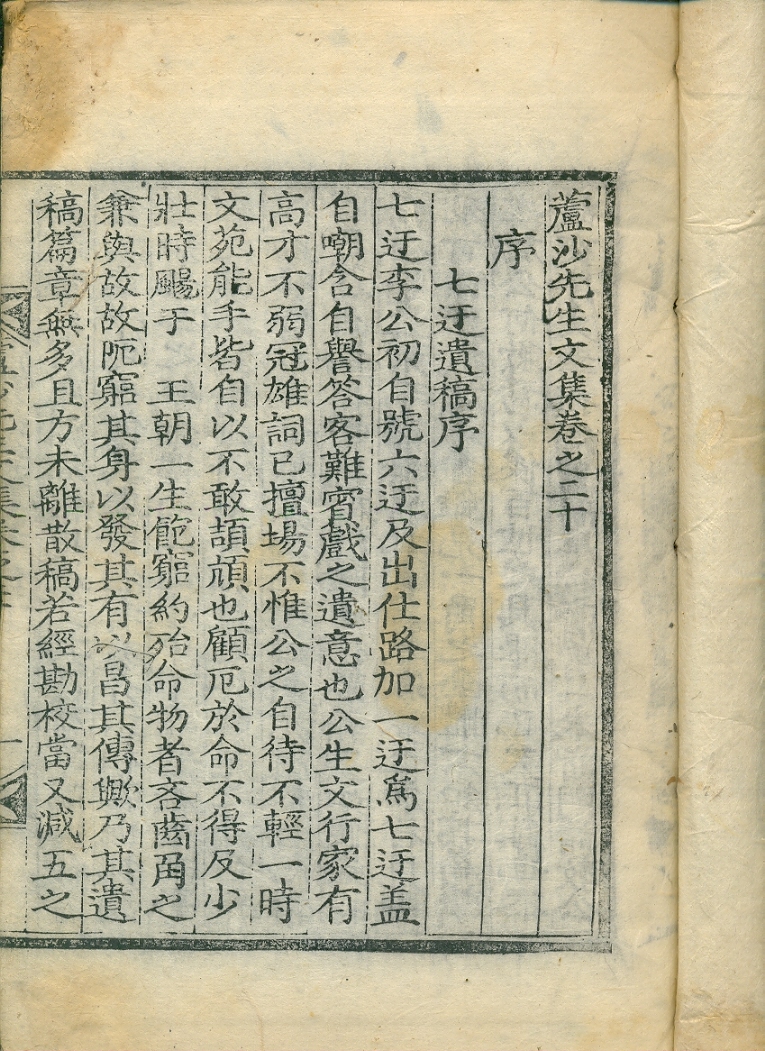 蘆沙先生文集卷之二十
序
七迂遺稿序
七迂李公初自號六迂及出仕路加一迂爲七迂盖
自嘲含自譽答客難賓戱之遺意也公生文行家有
高才不弱冠雄詞已擅場不惟公之自待不輕一時
文苑能手皆自以不敢頡頏也顧厄於命不得反少
壯時颺于 王朝一生飽窮約殆命物者吝齒角之
兼與故故阨窮其身以發其有以昌其傳歟乃其遺
稿篇章無多且方未離散稿若經勘校當又減五之